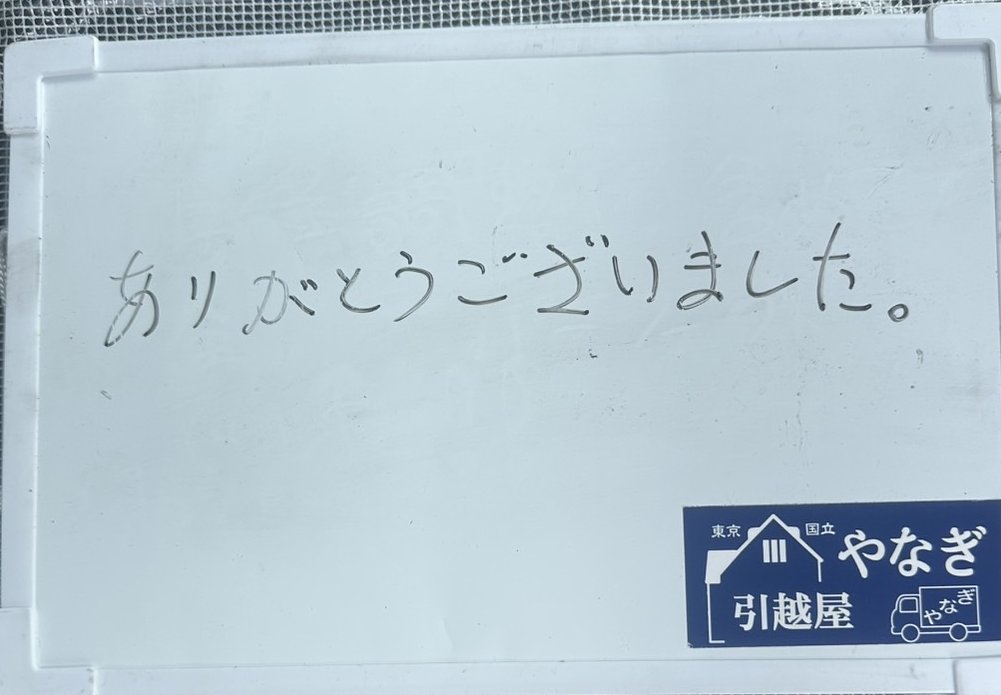 ありがとうございました。
東京 国立 やなぎ
引越屋
やなぎ